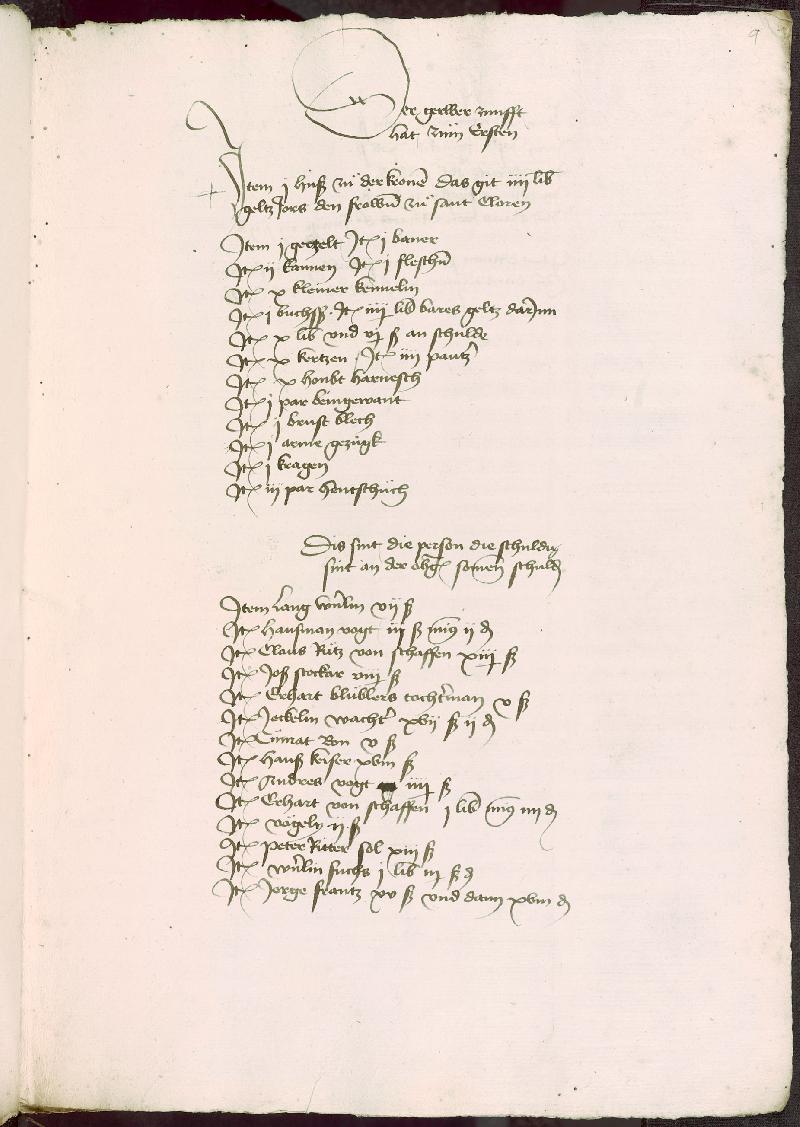 9
Der gerwer zunfft
hat zům Ersten
Item j huß zů der kronē das git iiij lib
geltz Jors den frowē zů sant Cloren
Item j gezelt Jt j baner
Jt ij kannen Jt j fleschē
Jt x kleiner kennelin
Jt j buchsß Jt iiij lib bares geltz darjnn
Jt x lib vnd vj ß an schulde
Jt x kertzen Jt iiij pantz
Jt v houbt harnesch
Jt j par beingewant
Jt j brust blech
Jt j arme gezügk
Jt j kragen
Jt iij par hentschůch
Dis sint die person die schuldig
sint an der obg somen schuld
Item Lang wnlin vij ß
Jt hansman vogt iij ß mi9 ij d
Jt Claus Ritz von schaffen xiij ß
Jt Joß stockar viiij ß
Jt Erhart blüblers tochtman v ß
Jt Jeckelin wacht xvij ß ij d
Jt Cůnrat Bon v ß
Jt hanß keiser xviij ß
Jt Andres vogt iiij ß
Jt Erhart von schaffen j lib mi9 iiij d
Jt vogely ij ß
Jt peter Ritter sol xiij ß
Jt wnlin fuchs j lib iij ß d
Jt Jorge frantz xv ß vnd dann xviij d